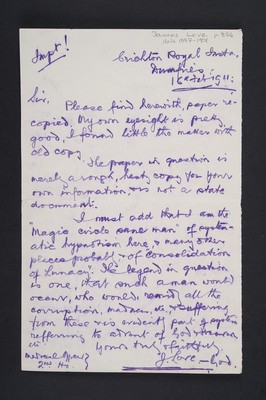 James Love p 836
Impt!
Crichton Royal Instn,
Dumfries.
16 Feb '11:
Sir,
Please find herewith, paper re-
copied. My own eyesight is pretty
good, I found little the matter with
old copy.
The paper in question is
merely a rough, hasty copy for your
own information, & is not a state
document.
I must add that I am the
"Magic circle sane man" of system-
atic hypnotism here, & many other
places probably & of consolidation
of Lunacy. The legend in question
is one, that such a man would
occur, who would all the
corruption, madness, etc, & suffering
from these & is evidently part of system
refferring to advent of God & Heaven
etc:
Yours truly & faithfully,
J Love — God.
2nd